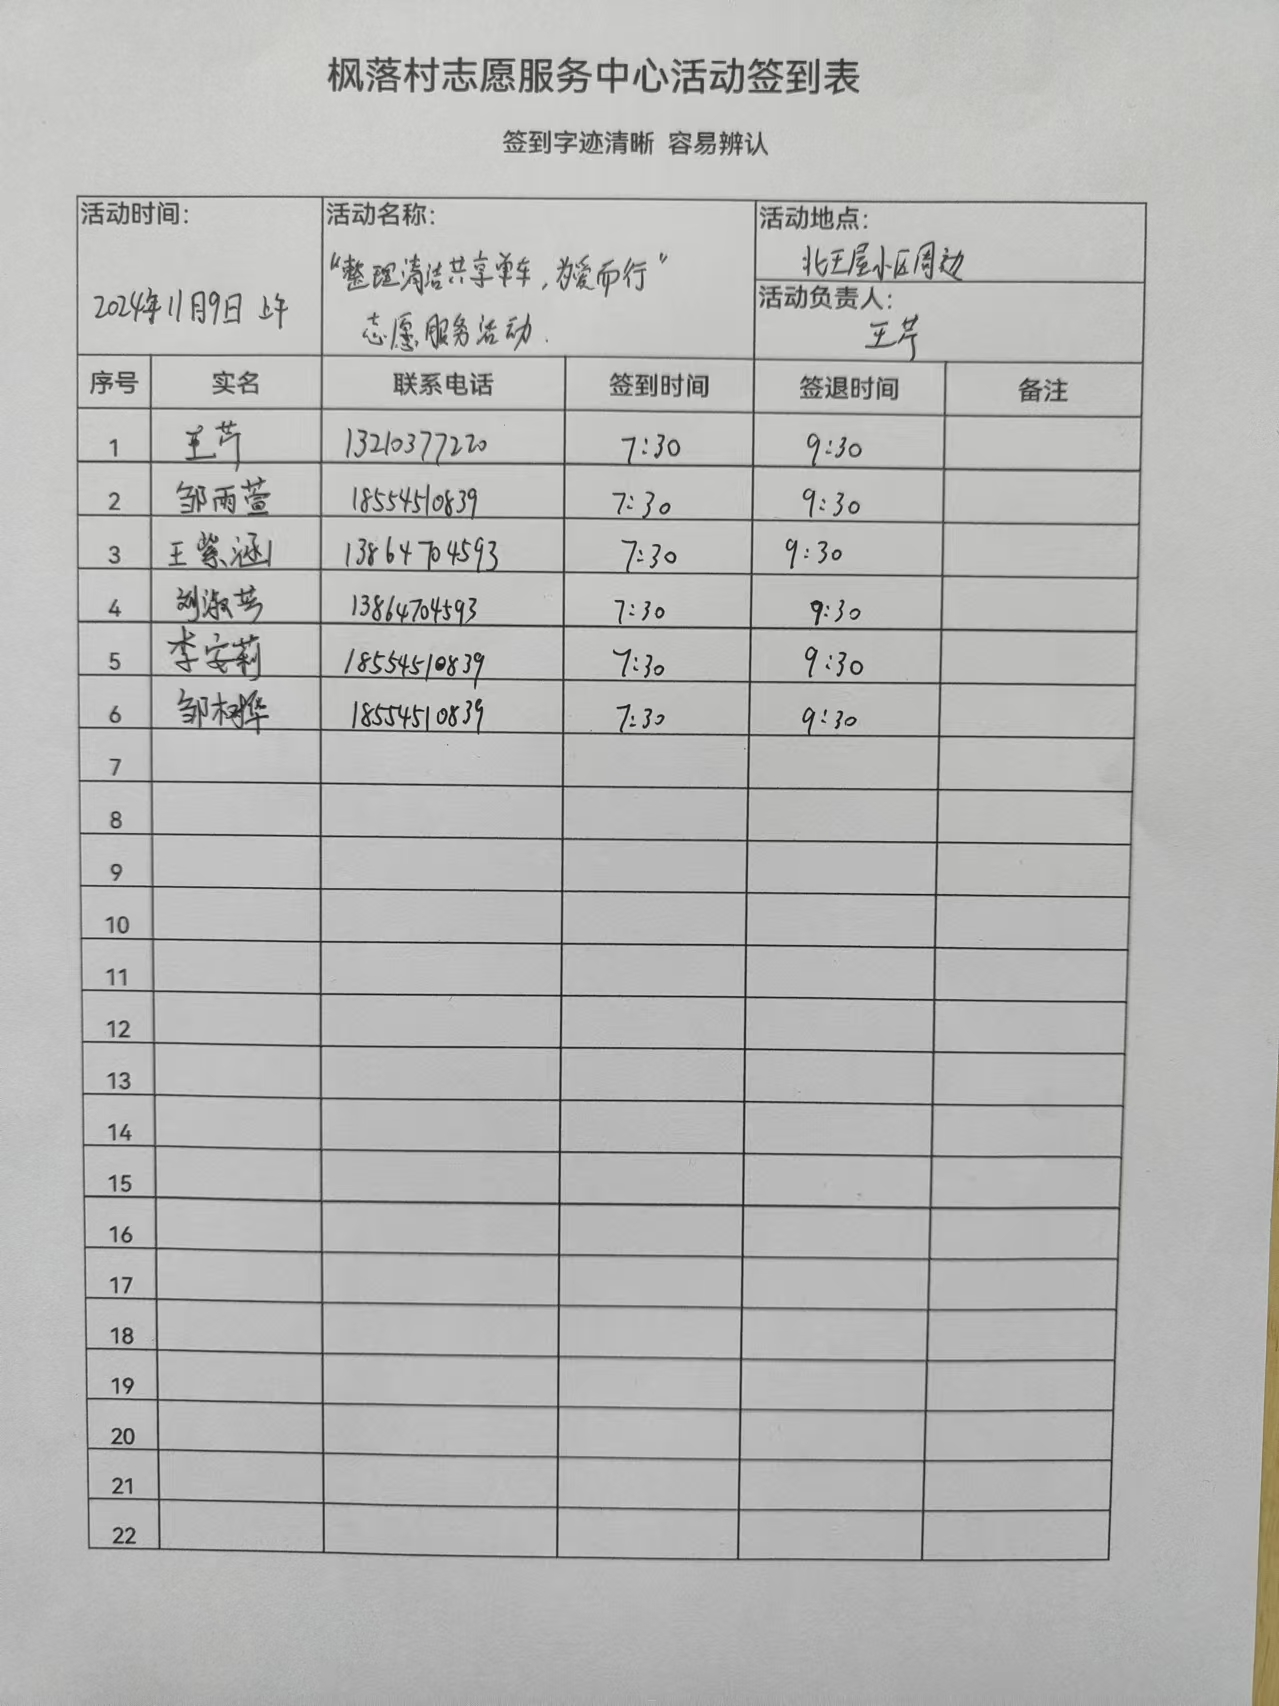 枫落村志愿服务中心活动签到表
签到字迹清晰 容易辨认
活动时间：
2024年11月9日 上午
活动名称：
“整理清洁共享单车，为爱而行”
志愿服务活动.
活动地点：
北王屋小区周边
活动负责人：
王芹
序号 实名 联系电话 签到时间 签退时间 备注
1 王芹 13210377220 7:30 9:30
2 邹雨萱 18554510839 7:30 9:30
3 王紫涵 13864704593 7:30 9:30
4 刘淑芸 13864704593 7:30 9:30
5 李安莉 18554510839 7:30 9:30
6 邹柯桦 18554510839 7:30 9:30
7
8
9
10
11
12
13
14
15
16
17
18
19
20
21
22